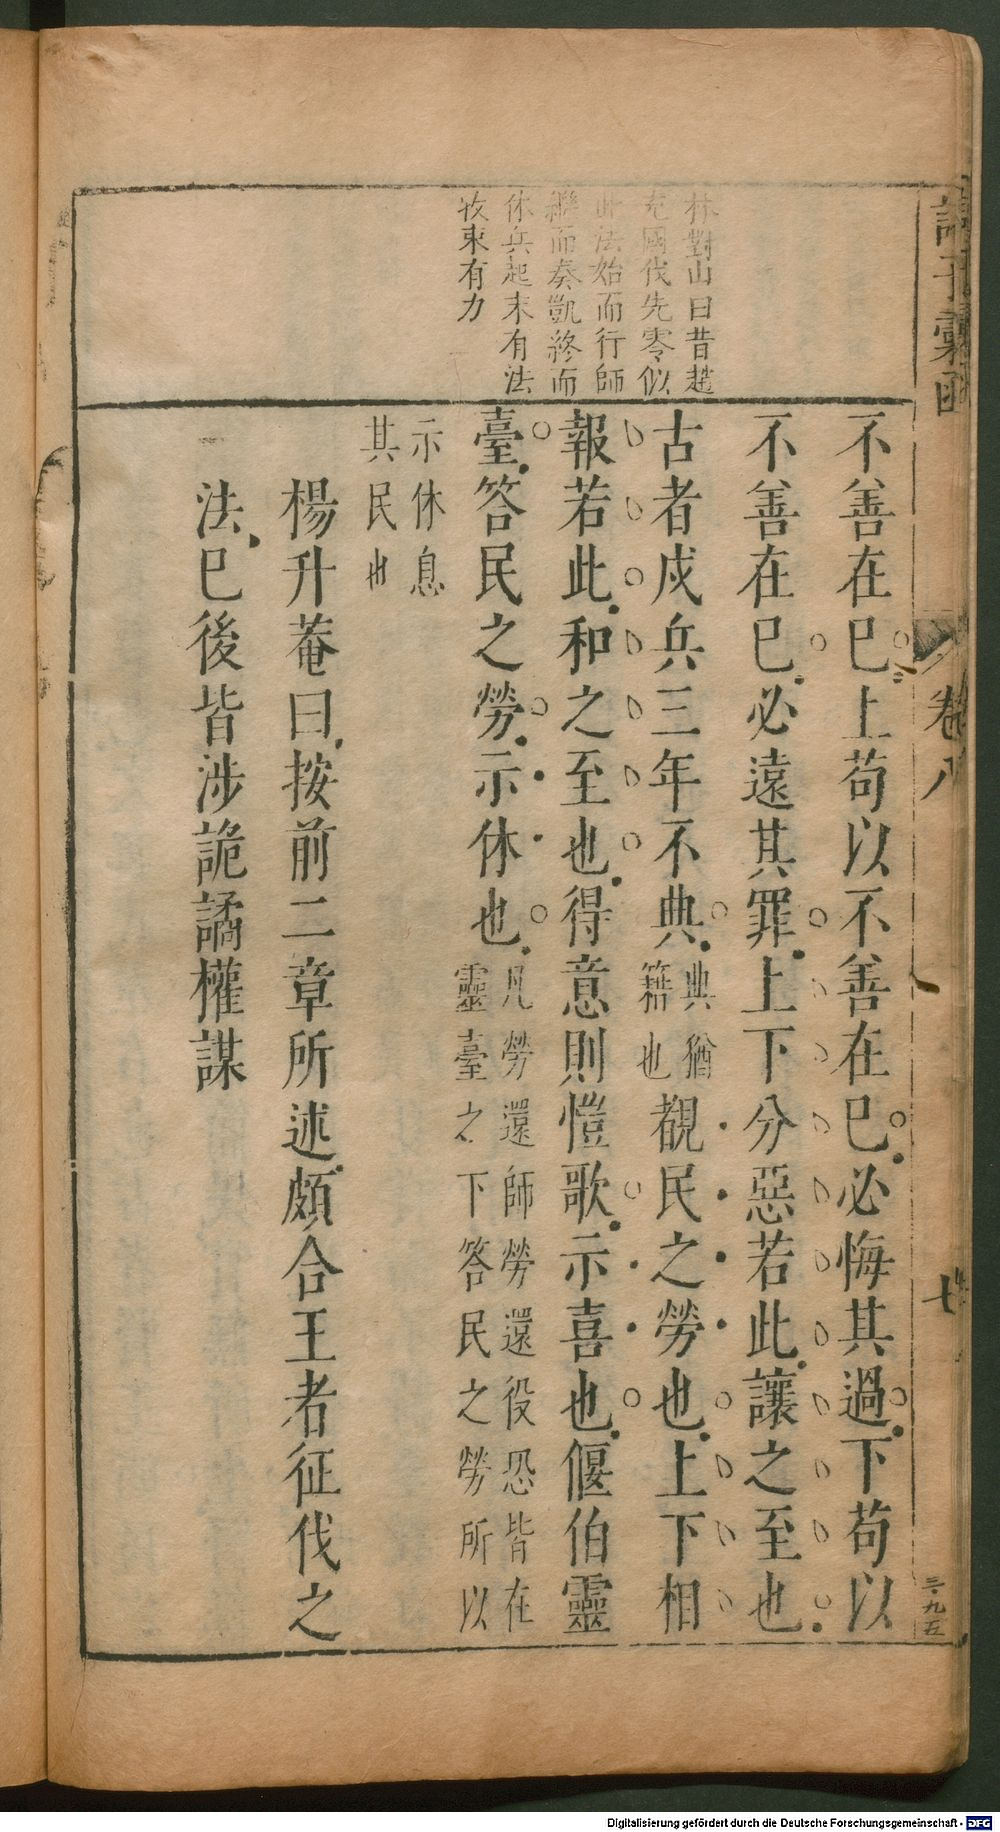 諸子彙函
卷八
七
三九五
林對山曰昔趙
充國伐先零似
此法始而行師
繼而奏凱終而
休兵起末有法
收束有力
不善在已上苟以不善在已必悔其過下苟以
不善在已必遠其罪上下分惡若此讓之至也
古者戍兵三年不典典猶籍也覩民之勞也上下相
報若此和之至也得意則愷歌示喜也偃伯靈
臺答民之勞示休也凡勞還師勞還役恐皆在靈臺之下答民之勞所以
示休息其民也
楊升菴曰按前二章所述頗合王者征伐之
法已後皆涉詭譎權謀
Digitalisierung gefördert durch die Deutsche Forschungsgemeinschaft - DFG